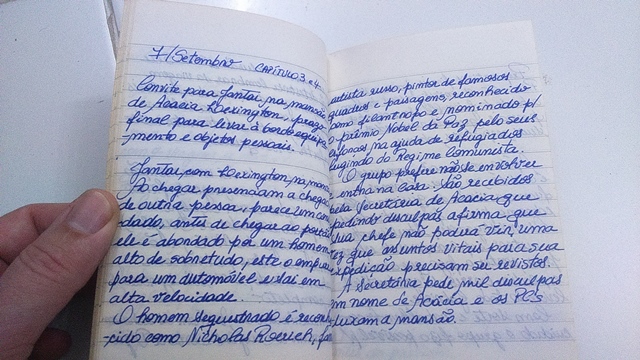 7/Setembro CAPÍTULO 3 e 4
Convite para Jantar, na mansão
de Acacia Lexington, prazo
final para levar à bordo equipa-
mento e objetos pessoais.
Jantar com Lexington, na mansão
Ao chegar, presenciam a chegada
de outra pessoa, parece um con-
dado, antes de chegar ao portão
ele é abordado por um homem
alto de sobretudo, este o empurra
para um automóvel e sai em
alta velocidade.
O homem sequestrado é reconhe-
cido como Nicholas Roerich,
artista russo, pintor de famosos
quadros e paisagens, reconhecido
como filantropo e nominado p/
o prêmio Nobel da Paz pelos seus
esforços na ajuda de refugiados
fugindo do Regime Comunista.
O grupo prefere não se envolver
e entra na Casa. São recebidos
pela Secretária de Acacia que
pedindo desculpas afirma que
sua chefe não poderá vir, uma
vez que assuntos vitais para sua
expedição precisam ser revistos.
A secretária pede mil desculpas
em nome de Acácia e os PCs
deixam a mansão.